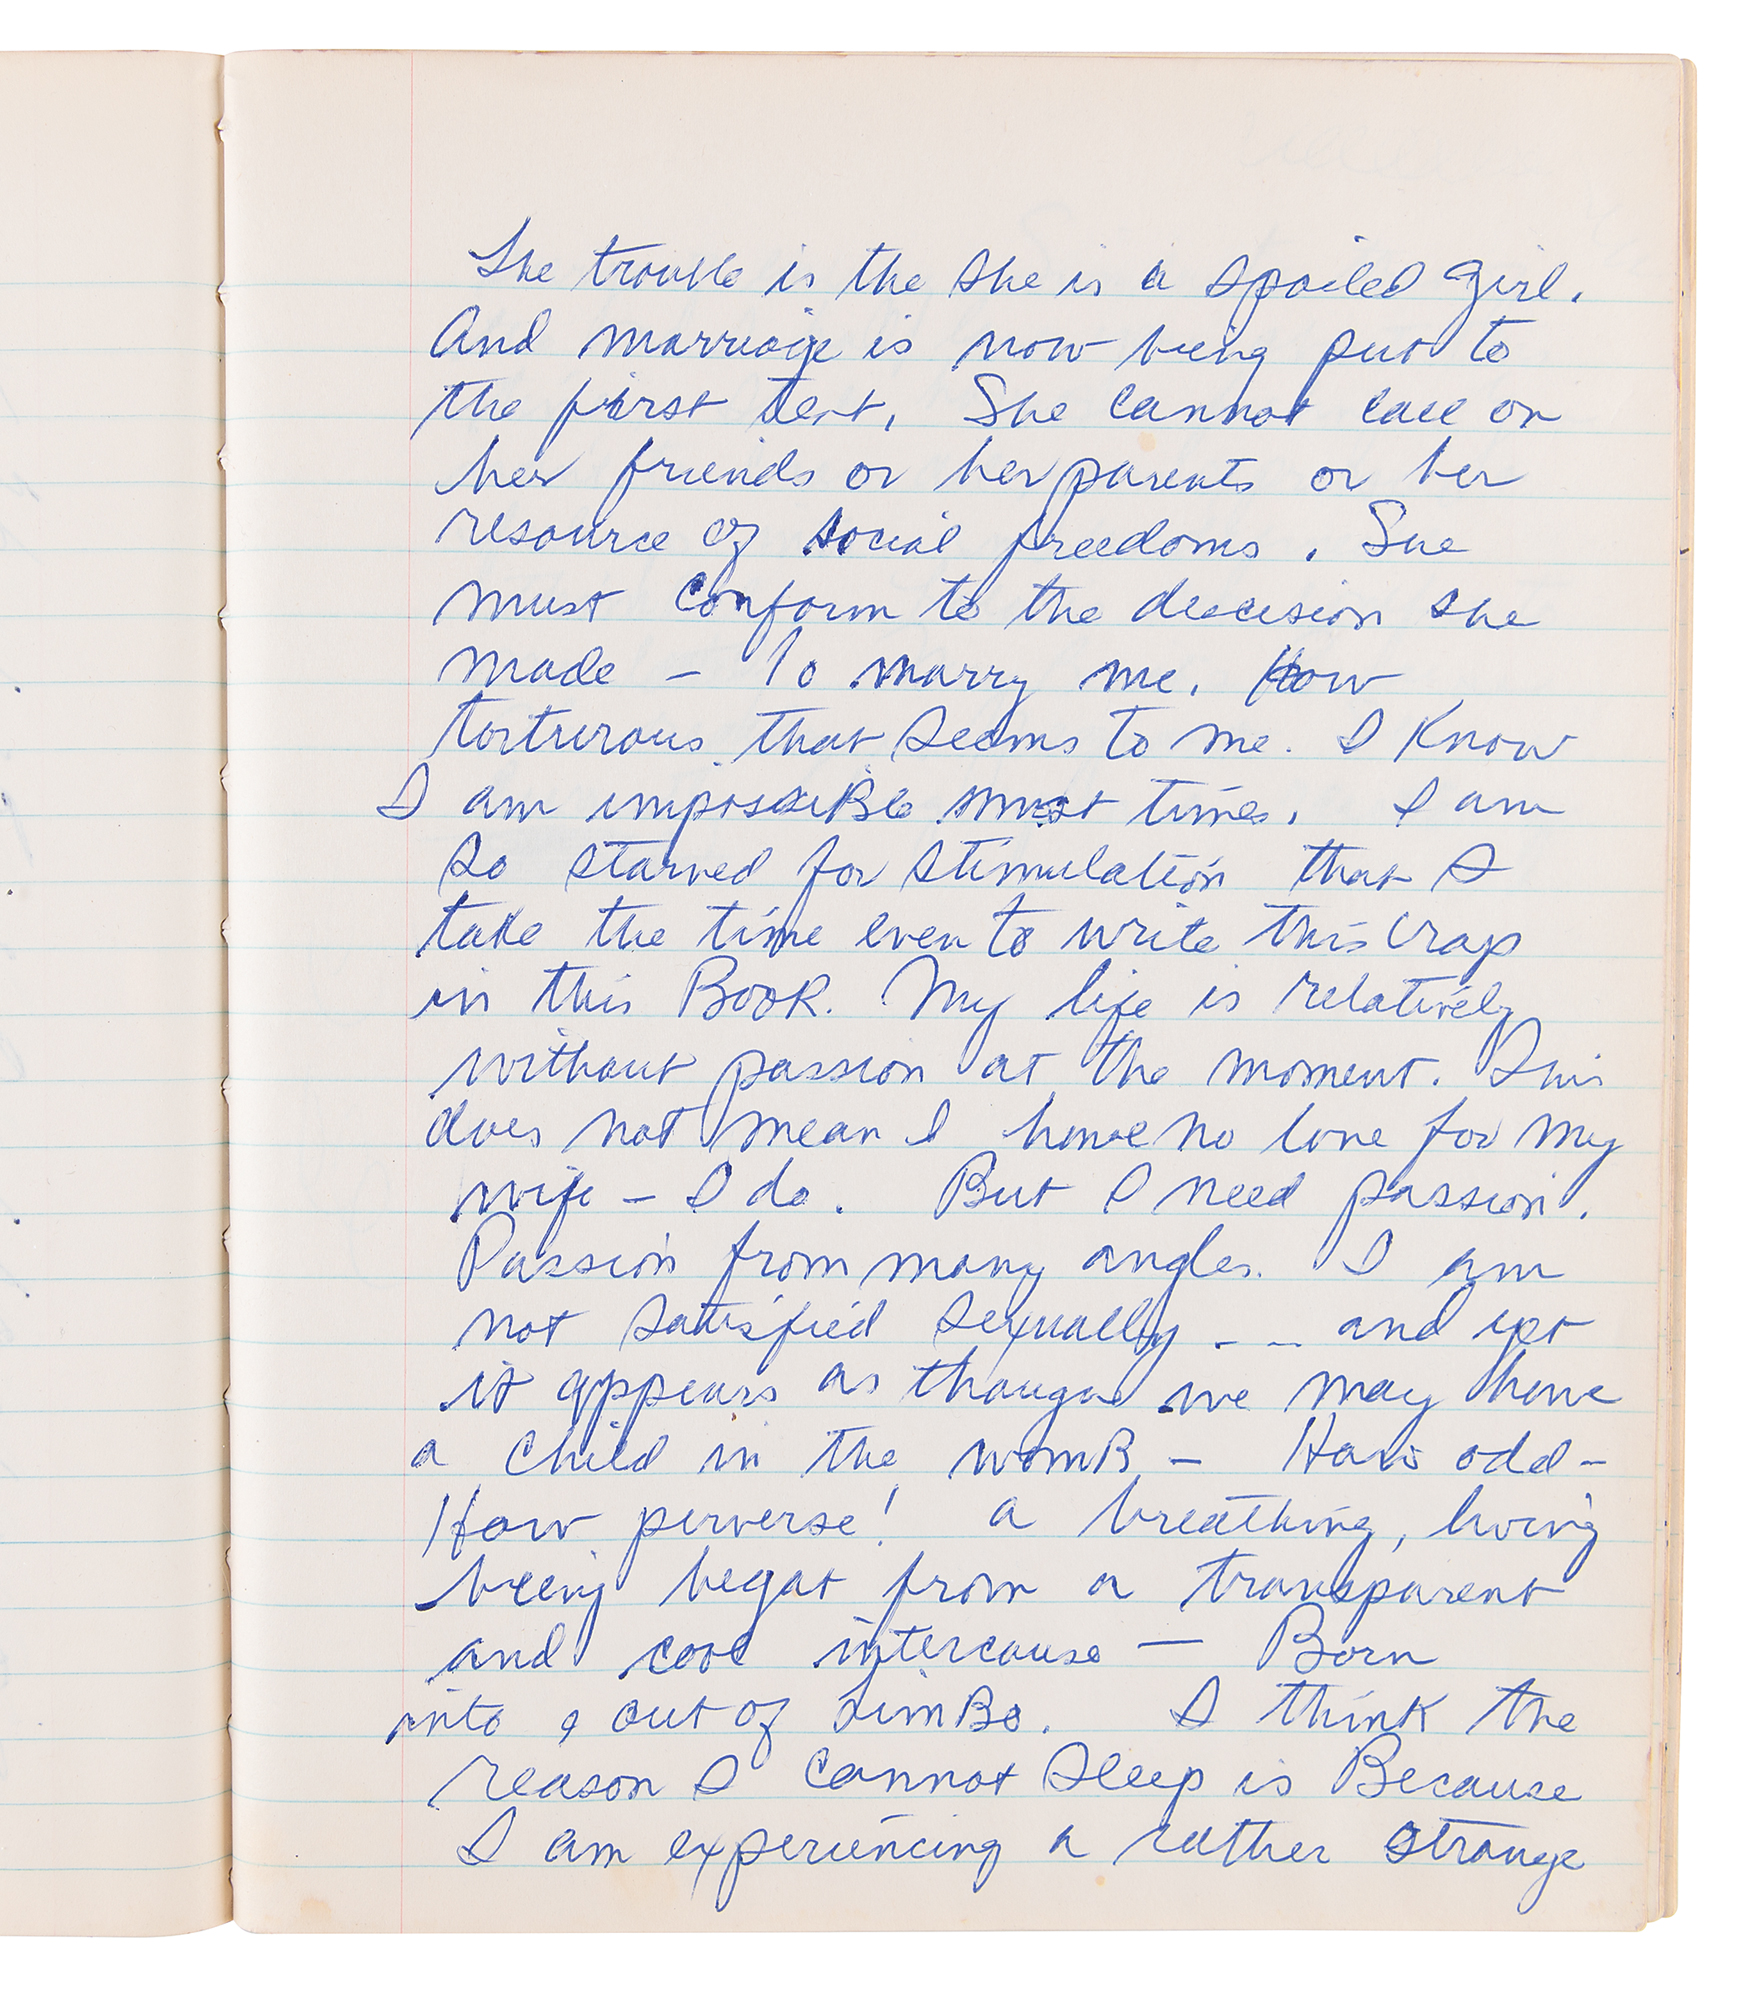 The trouble is the she is a spoiled girl.
And marriage is now being put to
the first test. She cannot call on
her friends or her parents or her
resource of social freedoms. She
must conform to the decision she
made – To marry me. How
torturous that seems to me. I know
I am impossible most times. I am
so starved for stimulation that I
take the time even to write this crap
in this Book. My life is relatively
without passion at the moment. This
does not mean I have no love for my
wife – I do. But I need passion.
Passion from many angles. I am
not satisfied sexually – – and yet
it appears as though we may have
a child in the womB – How odd –
How perverse! a breathing, living
being begat from a transparent
and cool intercouse — Born
into & out of LimBo. I think the
reason I cannot sleep is Because
I am experiencing a rather strange